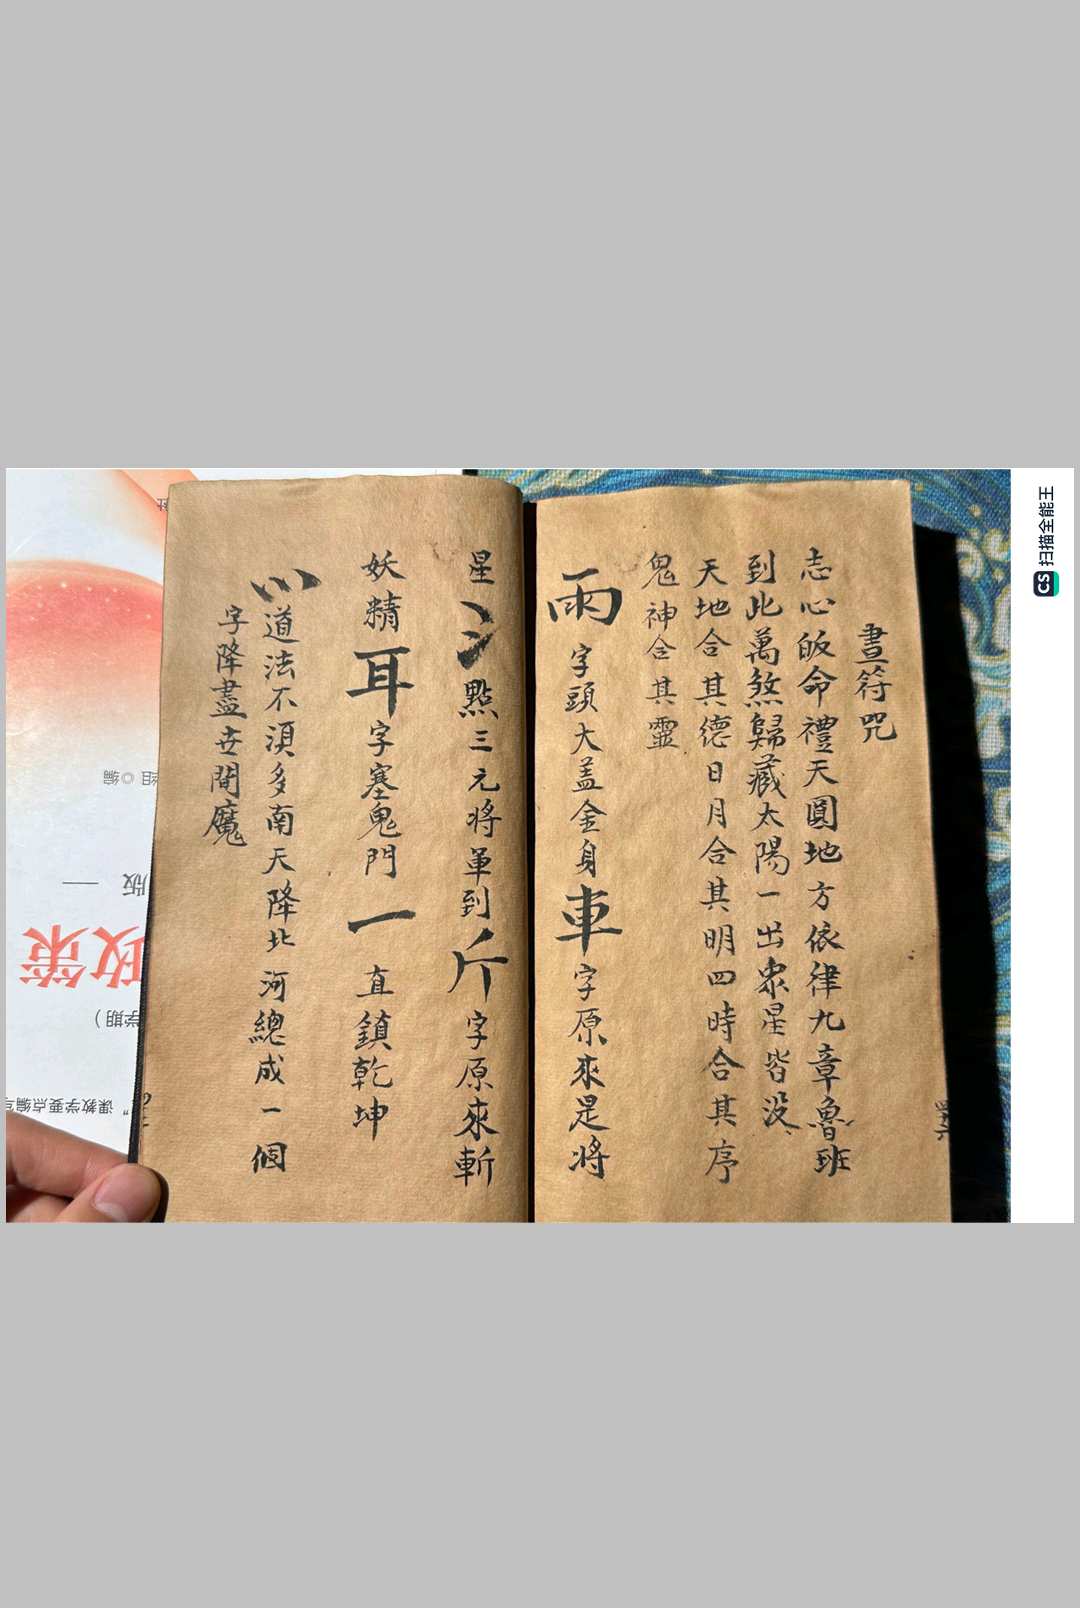 畫符咒
志心皈命禮天圓地方依律九章魯班
到此萬煞歸藏太陽一出眾星皆没
天地合其德日月合其明四時合其序
鬼神合其靈
雨字頭大盖金身車字原來是將
星氵點三元將軍到斤字原來斬
妖精耳字塞鬼門一直鎮乾坤
道法不須多南天降北河總成一個
字降盡世間魔
政策
版
组◎编
学期）
课教学要点编写
社
CS 扫描全能王